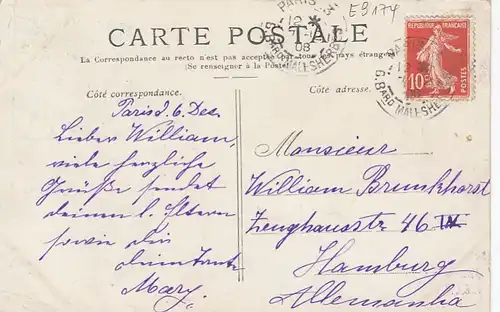 E8174
PARIS
12
08
G. BARD MALESHERBES
CARTE POSTALE
La Correspondance au recto n'est pas acceptée par tous les pays étrangers
(Se renseigner à la Poste)
RÉPUBLIQUE FRANÇAISE
10c
POSTES
PARIS
G. BARD MALESHERBES
Côté correspondance.
Paris d. 6. Dez.
Lieber William,
viele herzliche
Grüße sendet
deinen l. Eltern
sowie dir
deine Tante
Mary.
Côté adresse.
Monsieur
William Brunkhorst
Zeughausstr 46 IV.
Hamburg
Allemanha